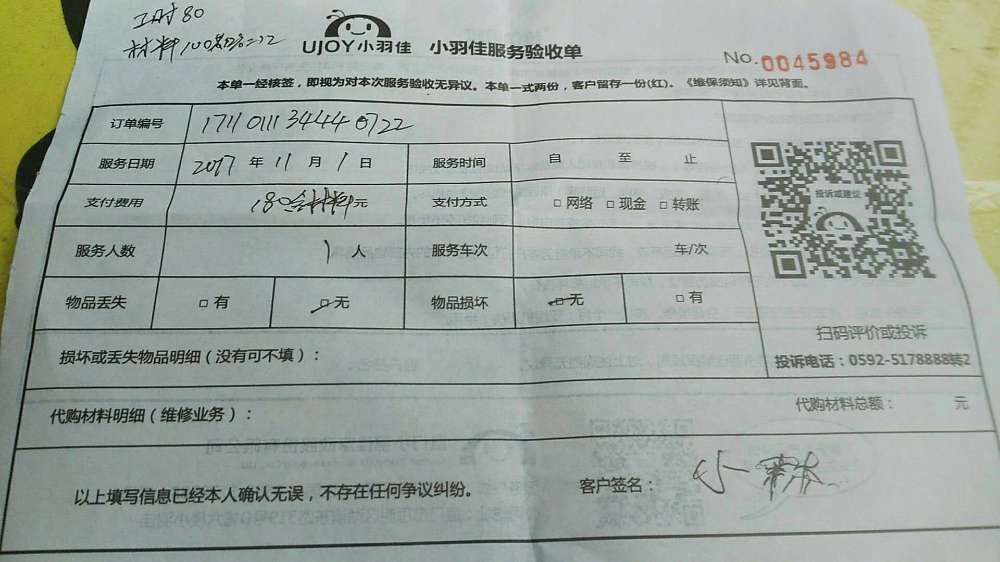 工时80
材料100
UJOY小羽佳 小羽佳服务验收单
No. 0045984
本单一经核签，即视为对本次服务验收无异议。本单一式两份，客户留存一份(红)。《维保须知》详见背面。
订单编号 171101113444 0722
服务日期 2017 年 11 月 1 日 服务时间 自 至 止
支付费用 180含材料元 支付方式 □网络 □现金 □转账
投诉或建议
服务人数 1 人 服务车次 车/次
物品丢失 □有 ☑无 物品损坏 ☑无 □有
扫码评价或投诉
投诉电话：0592-5178888转2
损坏或丢失物品明细（没有可不填）：
代购材料明细（维修业务）： 代购材料总额： 元
以上填写信息已经本人确认无误，不存在任何争议纠纷。 客户签名： 小